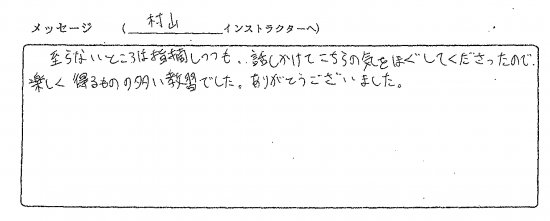 メッセージ （ 村山 インストラクターへ）
至らないところは指摘しつつも、話しかけてこちらの気をほぐしてくださったので、
楽しく得るものの多い教習でした。ありがとうございました。